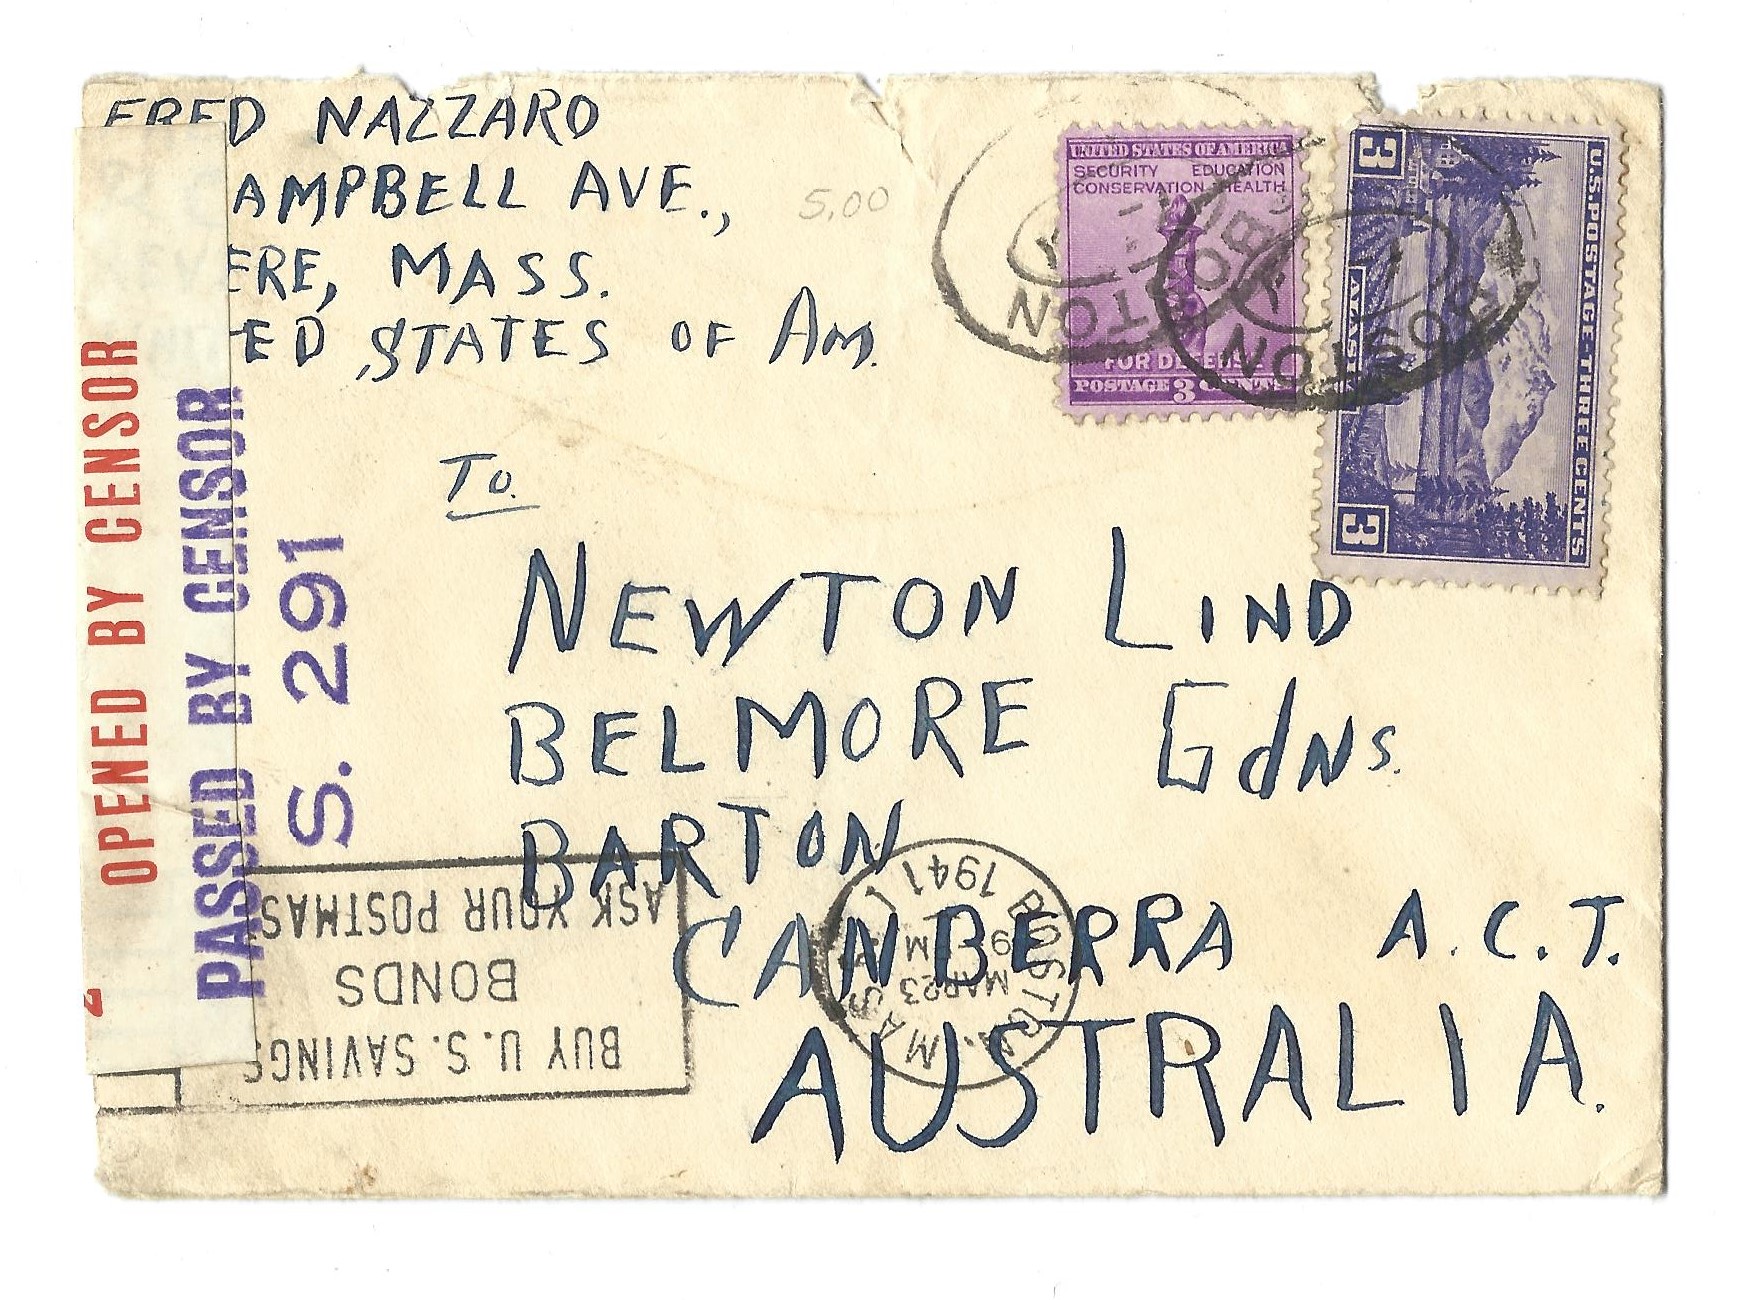 FRED NAZZARO
AMPBELL AVE.,
ERE, MASS.
ED STATES OF AM.
5.00
UNITED STATES OF AMERICA
SECURITY EDUCATION
CONSERVATION HEALTH
FOR DEFENSE
POSTAGE 3 CENTS
3
U.S. POSTAGE THREE CENTS
ALASKA
3
BOSTON
BOSTON
OPENED BY CENSOR
2
PASSED BY CENSOR
S. 291
To.
NEWTON LIND
BELMORE Gdns.
BARTON
CANBERRA A.C.T.
AUSTRALIA.
BUY U.S. SAVINGS
BONDS
ASK YOUR POSTMAS
BOSTON. MASS.
MAR 23
9 PM
1941